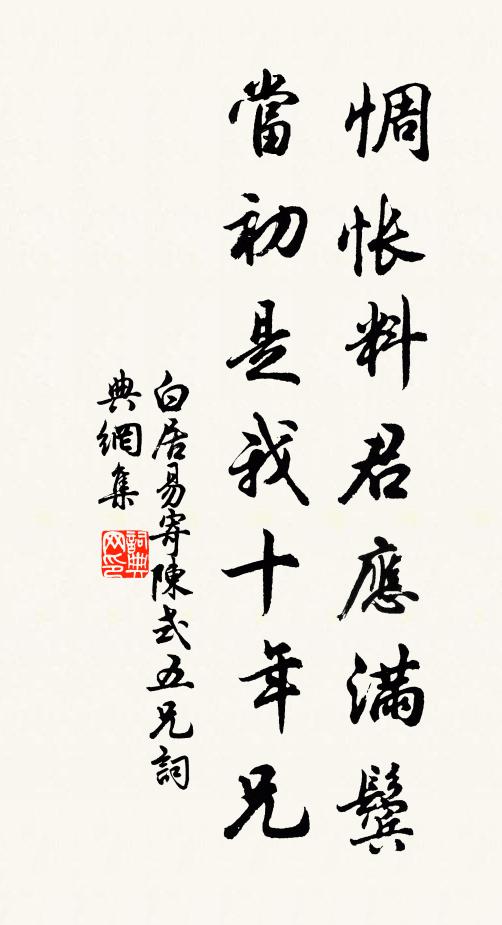 惆悵料君應滿鬢
當初是我十年兄
白居易寄陳式五兄詞
典網集
詞典
网印